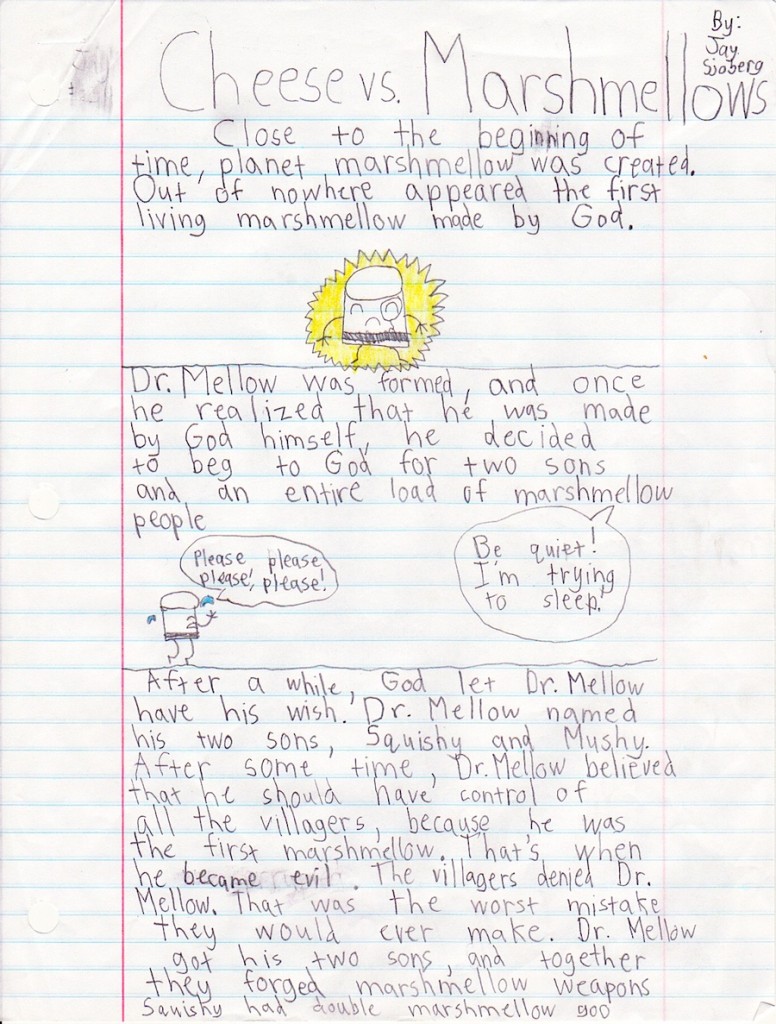 By:
Jay
Sjoberg
Cheese vs. Marshmellows
Close to the beginning of
time, planet marshmellow was created.
Out of nowhere appeared the first
living marshmellow made by God.
Dr. Mellow was formed, and once
he realized that he was made
by God himself, he decided
to beg to God for two sons
and an entire load of marshmellow
people
Please please
please, please!
Be quiet!
I'm trying
to sleep!
After a while, God let Dr. Mellow
have his wish. Dr. Mellow named
his two sons, Squishy and Mushy.
After some time, Dr. Mellow believed
that he should have control of
all the villagers, because he was
the first marshmellow. That's when
he became evil. The villagers denied Dr.
Mellow. That was the worst mistake
they would ever make. Dr. Mellow
got his two sons, and together
they forged marshmellow weapons
Squishy had double marshmellow goo